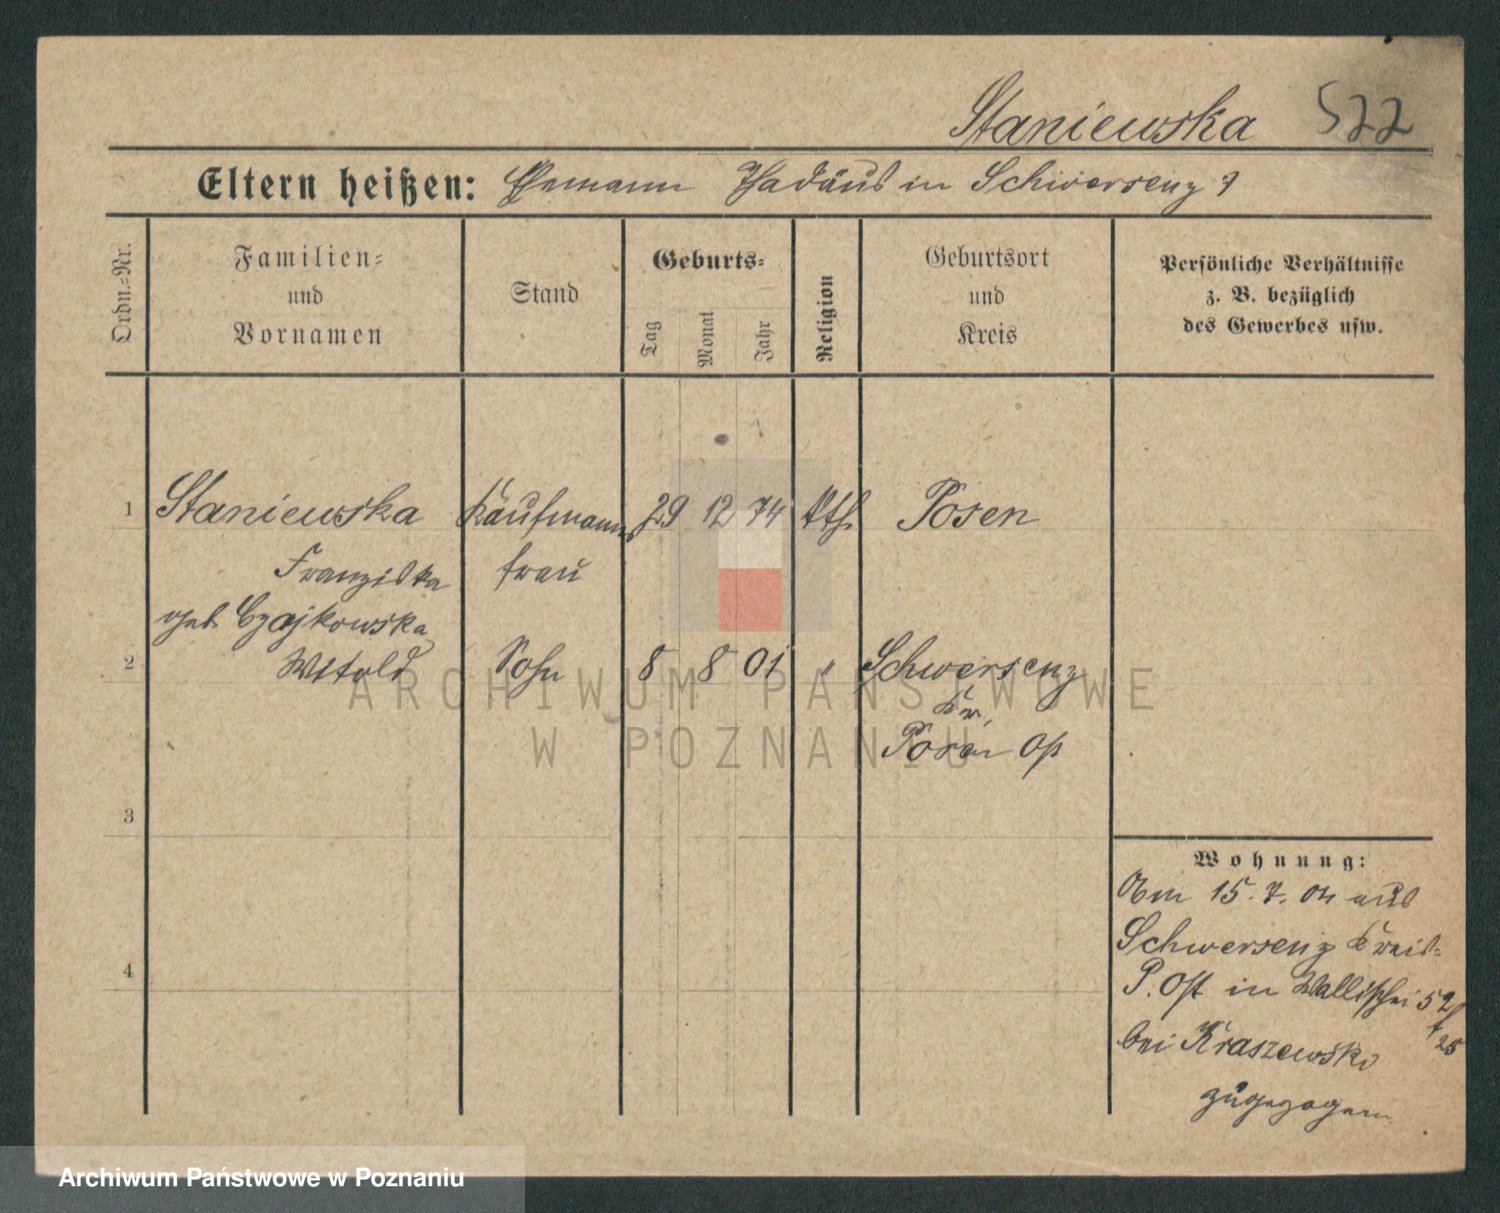 Staniewska 522
Eltern heißen: Ehemann Thadäus in Schwersenz
Ordn.-Nr.
Familien-
und
Vornamen
Stand
Geburts-
Tag
Monat
Jahr
Religion
Geburtsort
und
Kreis
Persönliche Verhältnisse
z. B. bezüglich
des Gewerbes usw.
1 Staniewska Kaufmanns 29 12 74 kth Posen
Franziska frau
geb. Czajkowska
2 Witold Sohn 8 8 01 " Schwersenz
Kr.
Posen Ost
3
4
Wohnung:
Am 15. 7. 04 aus
Schwersenz Kreis-
P. Ost in Wallischei 52
25
bei Kraszewski
zugezogen
ARCHIWUM PAŃSTWOWE
W POZNANIU
Archiwum Państwowe w Poznaniu